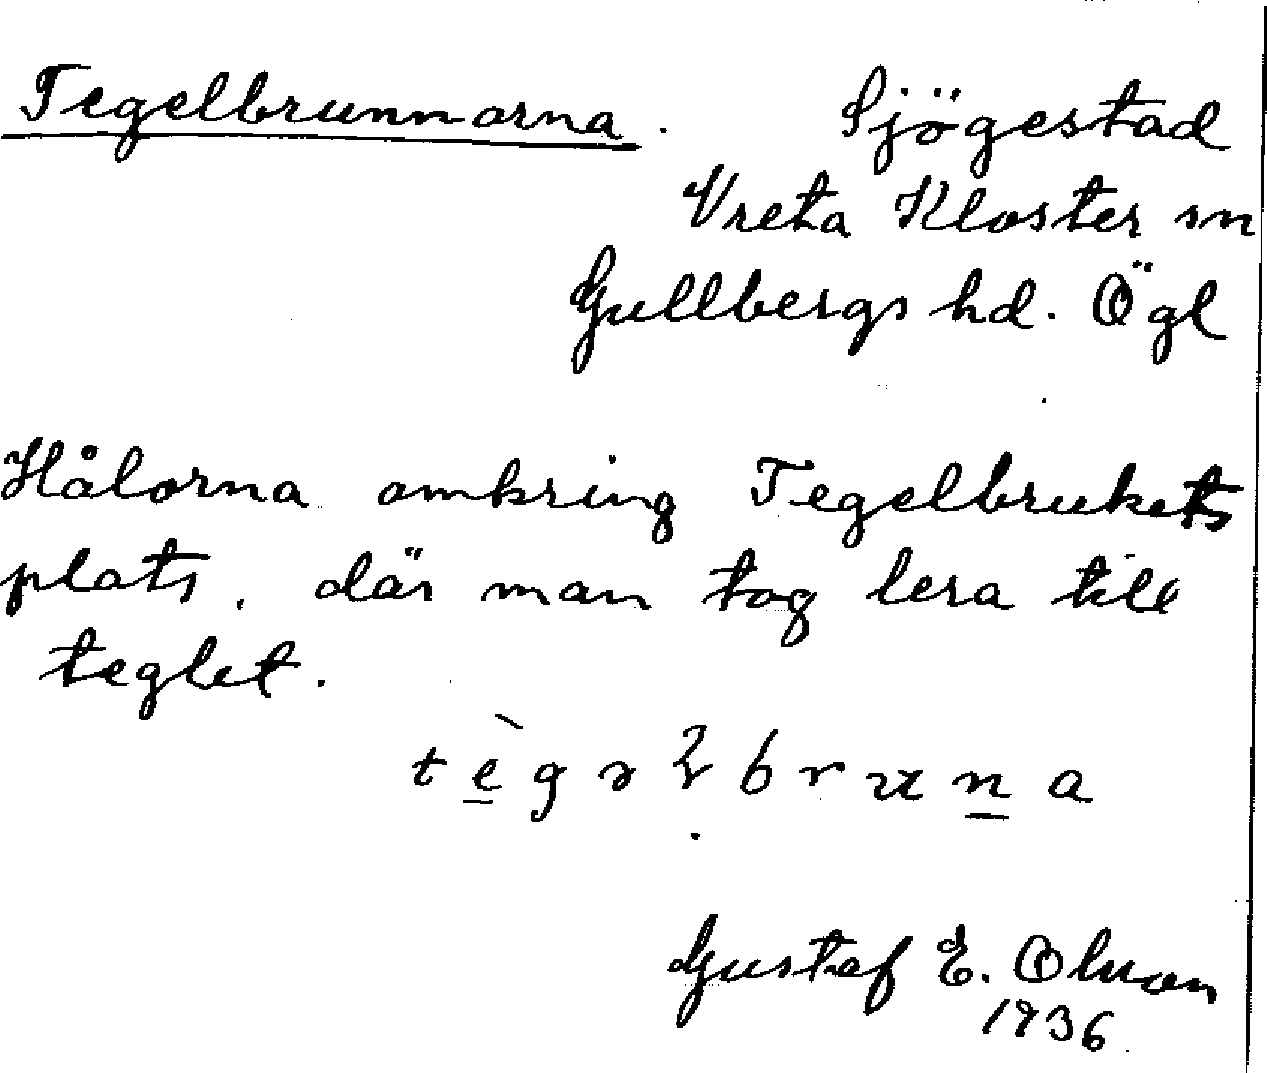 Tegelbrunnarna. Sjögestad
Vreta Kloster sn
Gullbergs hd. Ögl
Hålorna omkring Tegelbrukets
plats, där man tog lera till
teglet.
Gustaf E. Olsson
1936